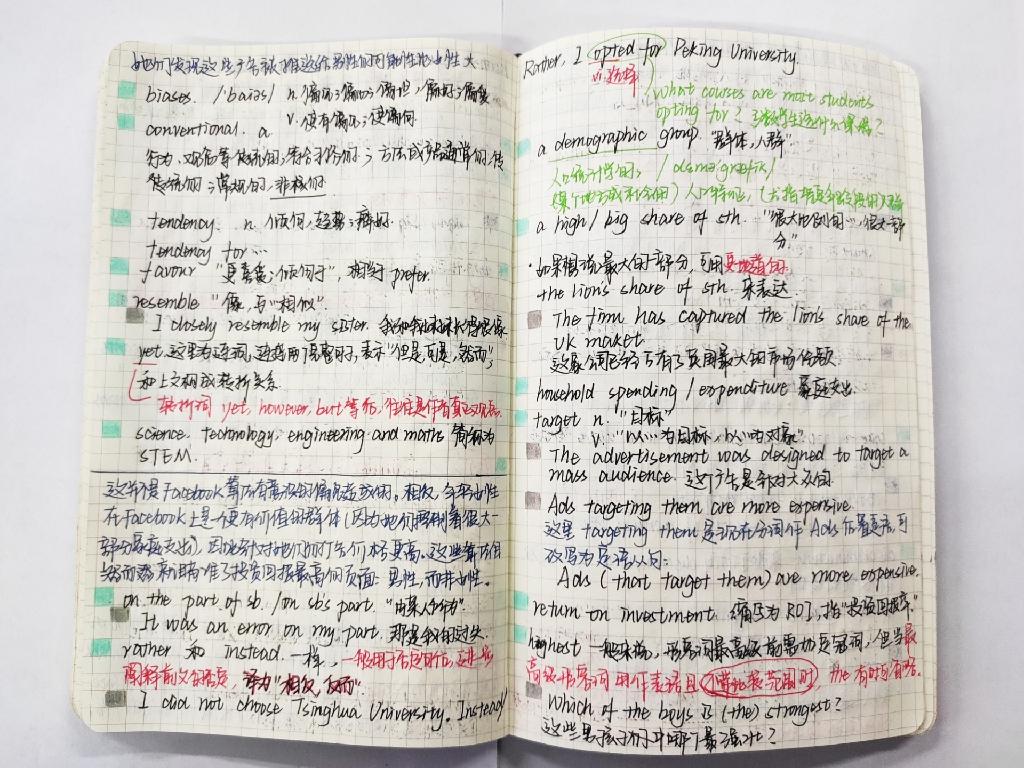 她们发现这些广告被推送给男性的可能性比女性大
biases. /ˈbaɪəs/ n. 偏见;偏心;偏袒,偏向;偏爱
v. 使有偏见;使偏向
conventional. a
行为、观念等传统的,符合习俗的;方法或产品通常的,传
统的;常规的,非核的
tendency. n. 倾向,趋势;癖好
tendency for…
favour "更喜爱;倾向于",相当于 prefer.
resemble "像,与~相似".
I closely resemble my sister. 我和我妹妹长得很像
yet. 这里为连词,连接两个句子时,表示"但是,可是,然而"
和上文构成转折关系.
转折词 yet, however, but 等后,往往是作者真正观点.
science. technology, engineering and maths 简称为
STEM.
这并不是Facebook算法有意识的偏见造成的。相反,女性
在Facebook上是一个更有价值的群体(因为她们控制着很大一
部分家庭支出),因此针对她们的广告价格更高。这些算法自
然而然就瞄准了投资回报最高的页面:男性,而非女性。
on the part of sb. /on sb's part. "由某人所为".
It was an error on my part. 那是我的过失.
rather 和 instead. 一样,一般用于否定句后,进一步
阐释前文的否定,译为"相反,反而".
I did not choose Tsinghua University. Instead/
Rather, I opted for Peking University.
vi. 选择
What courses are most students
opting for? 多数学生选什么课程?
a demographic group. "群体,人群".
人口统计学的; /ˌdeməˈɡræfɪk/
(某个地方或社会的)人口特征,(尤指特定年龄段的)人群
a high/big share of sth. "很大比例的","很大一部
分".
·如果想说最大的部分,可用更地道的
the lion's share of sth. 来表达.
The firm has captured the lion's share of the
UK market.
这家公司已经占有了英国最大的市场份额.
household spending / expenditure 家庭支出.
target n. "目标"
v. "以…为目标,以…为对象"
The advertisement was designed to target a
mass audience. 这个广告是针对大众的.
Ads targeting them are more expensive.
这里 targeting them 是现在分词作 Ads 后置定语,可
改写为定语从句:
Ads (that target them) are more expensive.
return on investment 缩写为 ROI,指"投资回报率".
highest 一般来说,形容词最高级前需加定冠词,但当最
高级形容词用作表语且不带比较范围时,the 有时可省略.
Which of the boys is (the) strongest?
这些男孩子们中哪个最强壮?